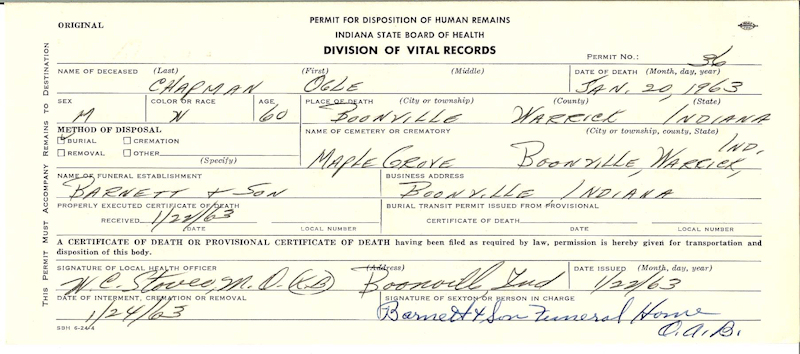 ORIGINAL
PERMIT FOR DISPOSITION OF HUMAN REMAINS
INDIANA STATE BOARD OF HEALTH
DIVISION OF VITAL RECORDS
PERMIT NO.: 36
THIS PERMIT MUST ACCOMPANY REMAINS TO DESTINATION
NAME OF DECEASED (Last) (First) (Middle) DATE OF DEATH (Month, day, year)
CHAPMAN OGLE JAN. 20, 1963
SEX COLOR OR RACE AGE PLACE OF DEATH (City or township) (County) (State)
M W 60 BOONVILLE WARRICK INDIANA
METHOD OF DISPOSAL NAME OF CEMETERY OR CREMATORY (City or township, county, State)
BURIAL CREMATION
REMOVAL OTHER
(Specify)
MAPLE GROVE BOONVILLE, WARRICK, IND.
NAME OF FUNERAL ESTABLISHMENT BUSINESS ADDRESS
BARNETT & SON BOONVILLE INDIANA
PROPERLY EXECUTED CERTIFICATE OF DEATH BURIAL TRANSIT PERMIT ISSUED FROM PROVISIONAL
RECEIVED 1/22/63 CERTIFICATE OF DEATH
DATE LOCAL NUMBER DATE LOCAL NUMBER
A CERTIFICATE OF DEATH OR PROVISIONAL CERTIFICATE OF DEATH having been filed as required by law, permission is hereby given for transportation and
disposition of this body.
SIGNATURE OF LOCAL HEALTH OFFICER (Address) DATE ISSUED (Month, day, year)
W.C. M.D. (K.B) Boonvill, Ind 1/22/63
DATE OF INTERMENT, CREMATION OR REMOVAL SIGNATURE OF SEXTON OR PERSON IN CHARGE
1/24/63 Barnett & Son Funeral Home
O.A.B.
SDH 6-24/4